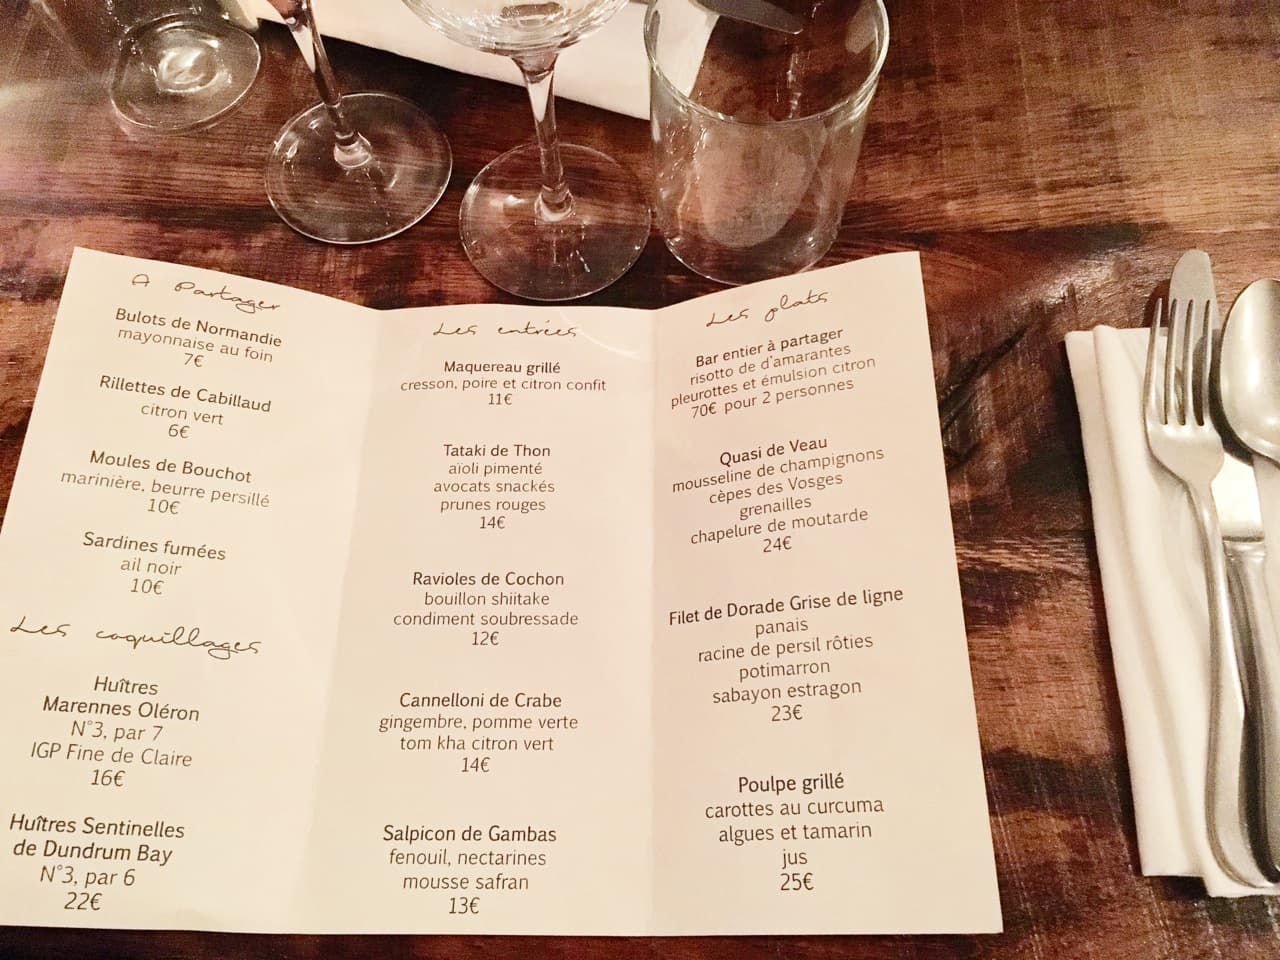 A Partager
Bulots de Normandie
mayonnaise au foin
7€
Rillettes de Cabillaud
citron vert
6€
Moules de Bouchot
marinière, beurre persillé
10€
Sardines fumées
ail noir
10€
Les coquillages
Huîtres
Marennes Oléron
N°3, par 7
IGP Fine de Claire
16€
Huîtres Sentinelles
de Dundrum Bay
N°3, par 6
22€
Les entrées
Maquereau grillé
cresson, poire et citron confit
11€
Tataki de Thon
aïoli pimenté
avocats snackés
prunes rouges
14€
Ravioles de Cochon
bouillon shiitake
condiment soubressade
12€
Cannelloni de Crabe
gingembre, pomme verte
tom kha citron vert
14€
Salpicon de Gambas
fenouil, nectarines
mousse safran
13€
Les plats
Bar entier à partager
risotto de d'amarantes
pleurottes et émulsion citron
70€ pour 2 personnes
Quasi de Veau
mousseline de champignons
cèpes des Vosges
grenailles
chapelure de moutarde
24€
Filet de Dorade Grise de ligne
panais
racine de persil rôties
potimarron
sabayon estragon
23€
Poulpe grillé
carottes au curcuma
algues et tamarin
jus
25€